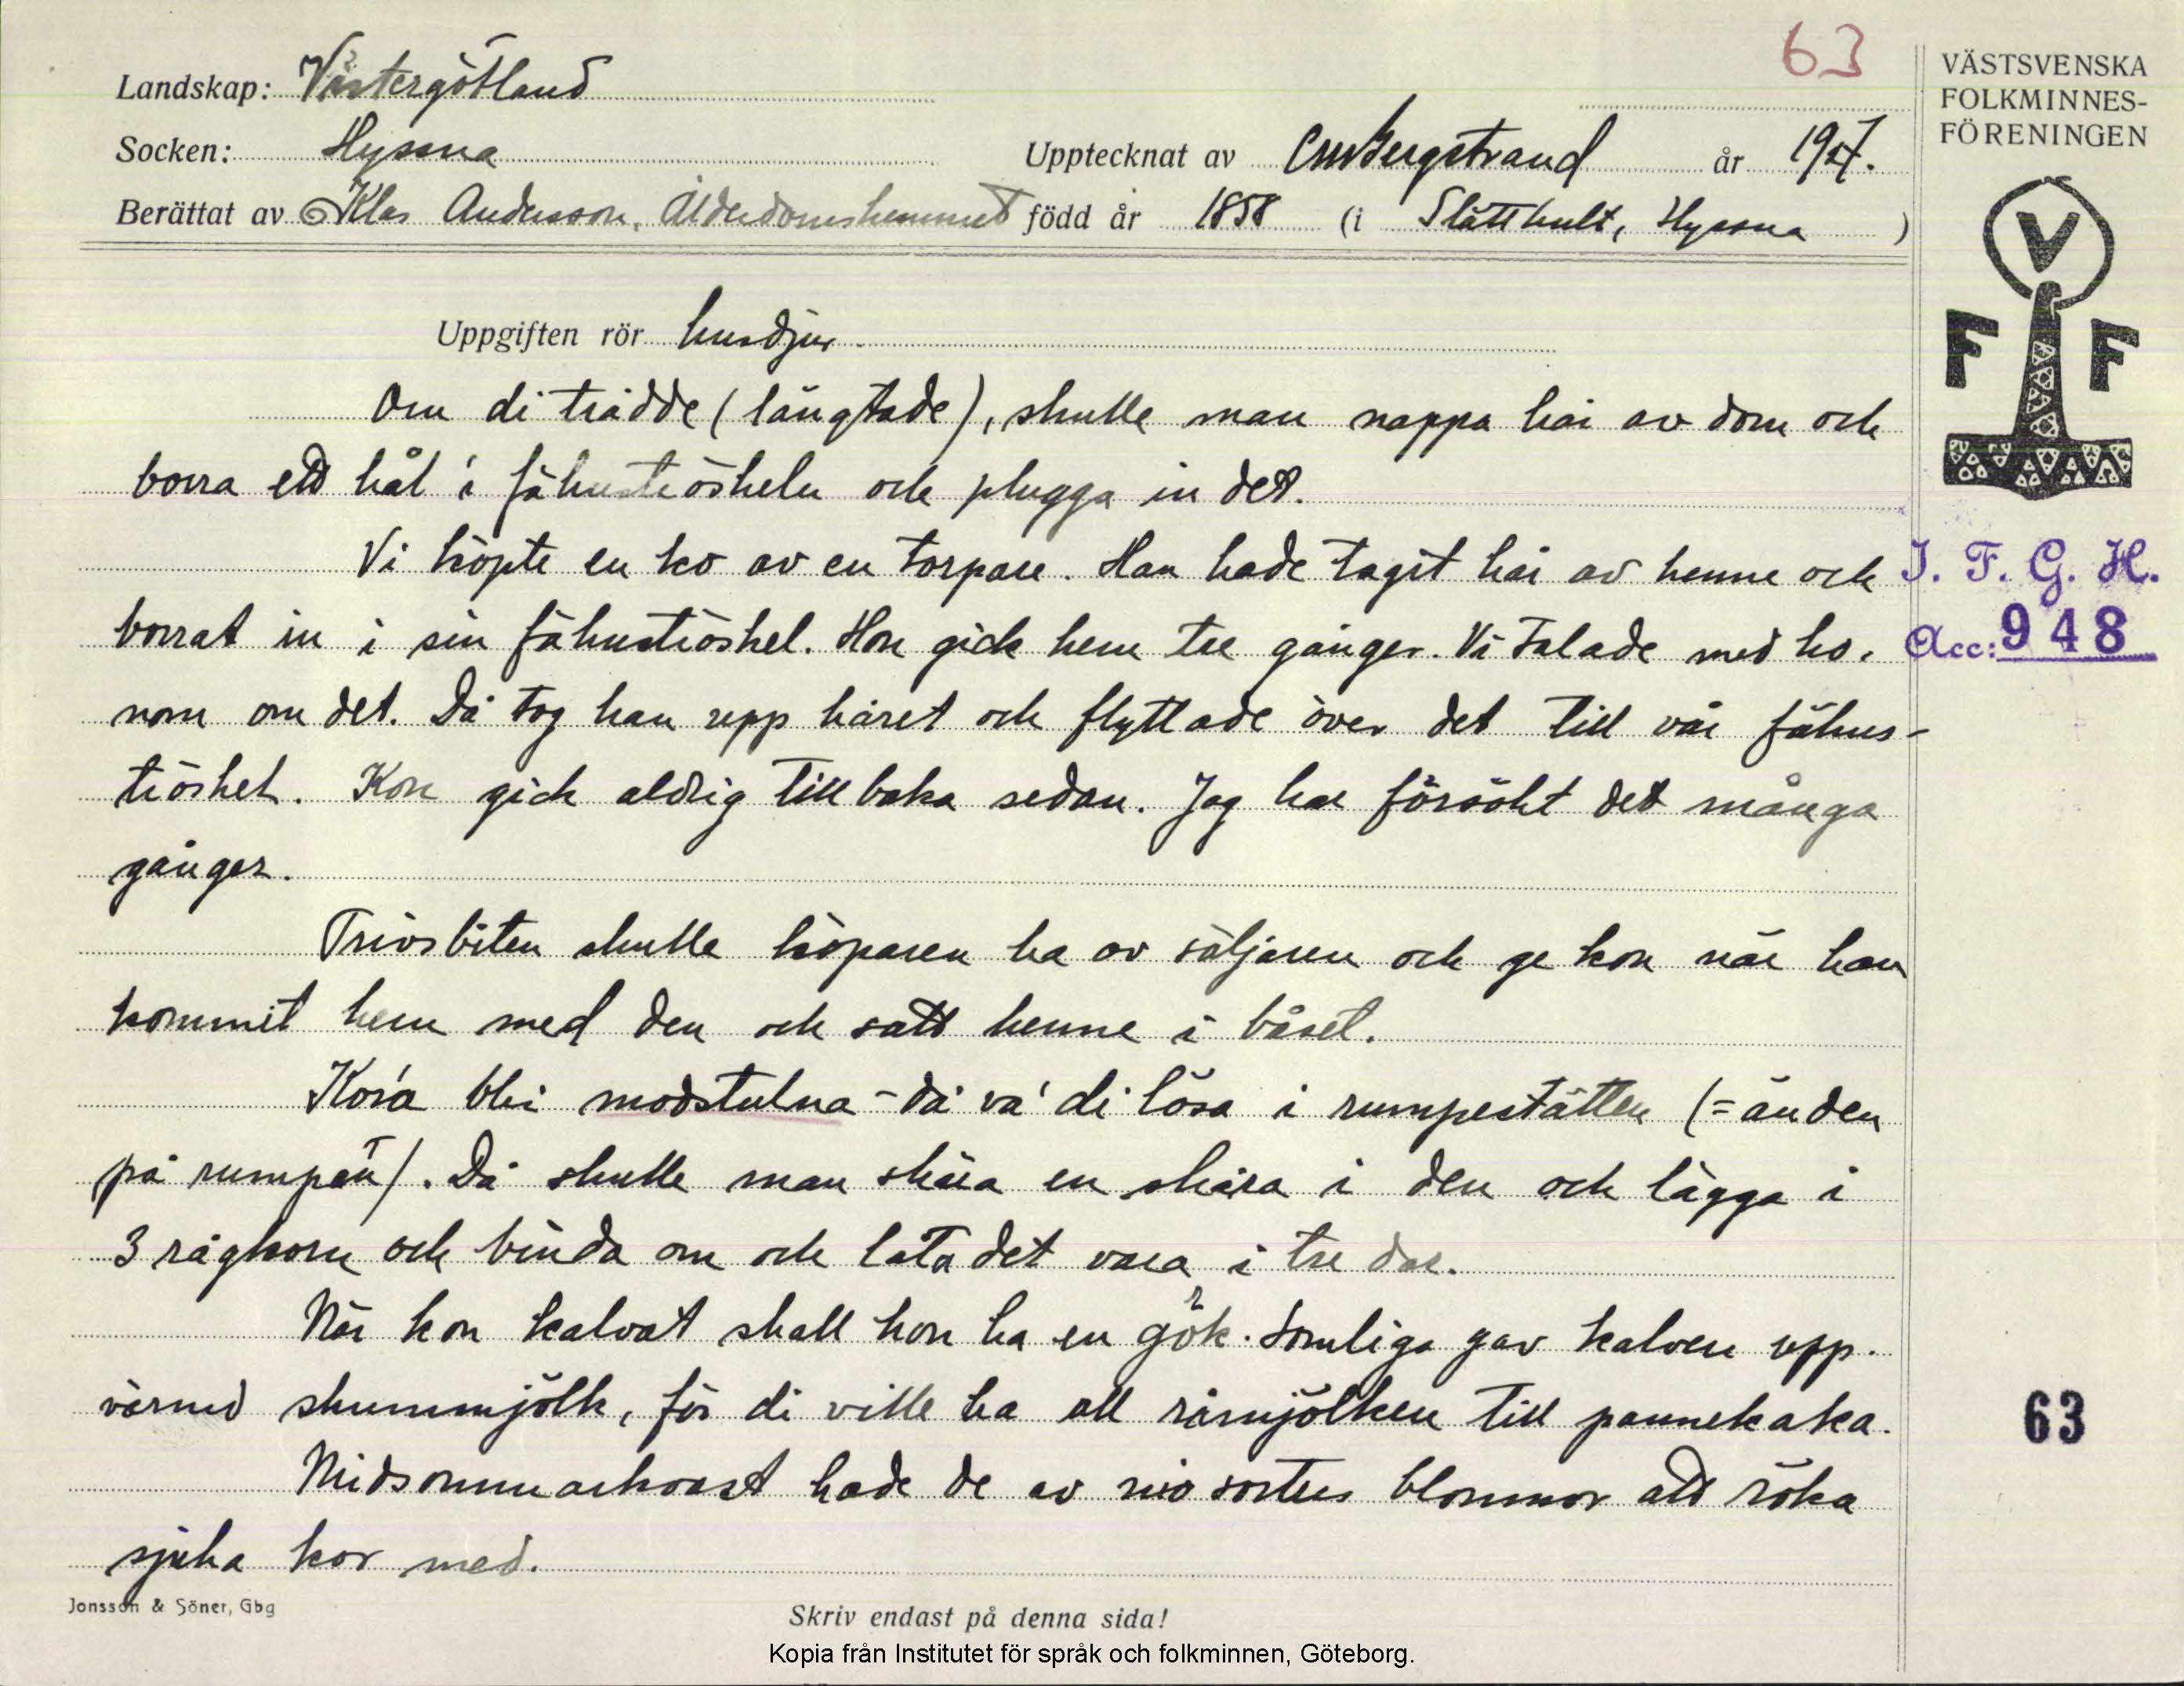 63
VÄSTSVENSKA
FOLKMINNES-
FÖRENINGEN
Landskap: Västergötland
Socken: Hyssna
Upptecknat av CMBergstrand år
Berättat av Klas Andersson, Ålderdomshemmet född år 1858 (i Slätthult, Hyssna )
V
F F
Uppgiften rör husdjur.
Om di trådde (längtade), skulle man nappa hår av dom och
borra ett hål i fähuströskeln och plugga in det.
Vi köpte en ko av en torpare. Han hade tagit hår av henne och
borrat in i sin fähuströskel. Hon gick hem tre gånger. Vi talade med ho-
nom om det. Då tog han upp håret och flyttade över det till vår fähus-
tröskel. Kon gick aldrig tillbaka sedan. Jag har försökt det många
gånger.
I. F. G. H.
Acc: 948
Trivsbiten skulle köparen ha av säljaren och ge kon när han
kommit hem med den och satt henne i båset.
Kor'a blei modstulna - då va' di lösa i rumpestätten (= änden
på rumpan). Då skulle man skära en skåra i den och lägga i
3 rågkorn och binda om och låta det vara i tre dar.
När kon kalvat skall hon ha en gök. Somliga gav kalven upp-
värmd skummjölk, för di ville ha all råmjölken till pannekaka.
Midsommarkvast hade de av nio sorters blommor att röka
sjuka kor med.
63
Jonsson & Söner, Gbg
Skriv endast på denna sida!
Kopia från Institutet för språk och folkminnen, Göteborg.